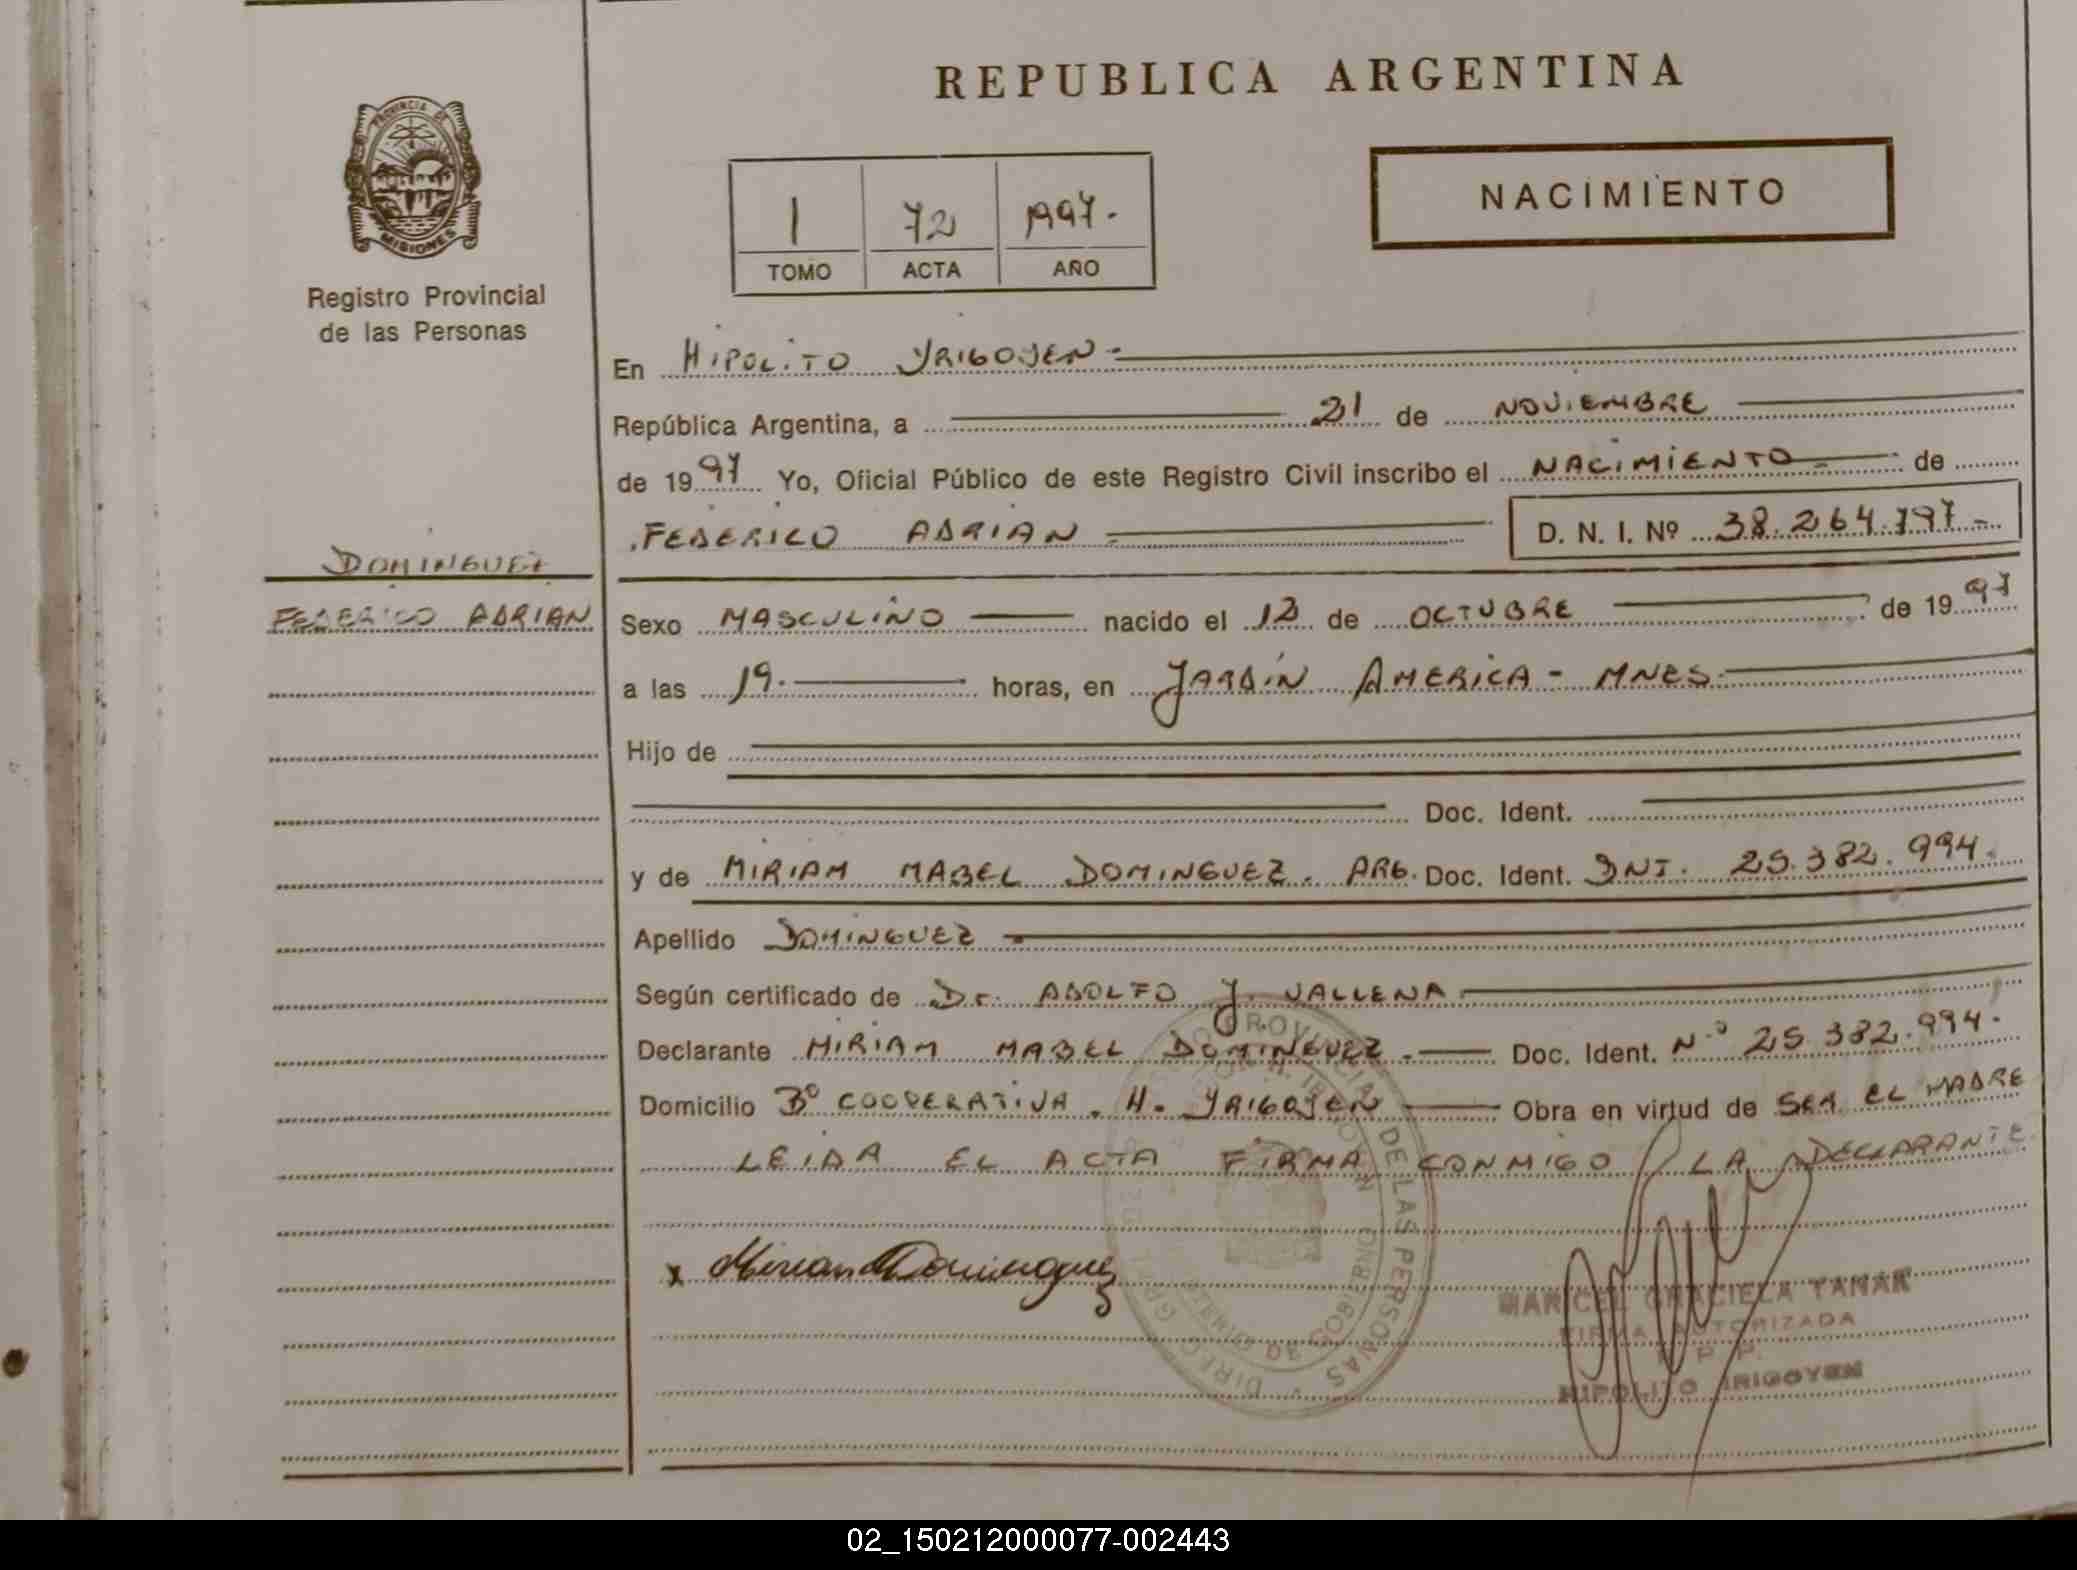 REPUBLICA ARGENTINA
PROVINCIA DE
MISIONES
Registro Provincial
de las Personas
NACIMIENTO
1 72 1997.
TOMO ACTA AÑO
En HIPOLITO YRIGOYEN.
República Argentina, a 21 de NOVIEMBRE
de 1997 Yo, Oficial Público de este Registro Civil inscribo el NACIMIENTO de
FEDERICO ADRIAN D. N. I. Nº 38.264.797
DOMINGUEZ
FEDERICO ADRIAN
Sexo MASCULINO nacido el 12 de OCTUBRE de 1997
a las 19. horas, en JARDIN AMERICA - MNES
Hijo de
Doc. Ident.
y de MIRIAM MABEL DOMINGUEZ. ARG. Doc. Ident. DNI. 25.382.994.
Apellido DOMINGUEZ
Según certificado de Dr. ADOLFO J. VALLENA
Declarante MIRIAM MABEL DOMINGUEZ. Doc. Ident. Nº 25 382.994.
Domicilio Bº COOPERATIVA. H. YRIGOYEN Obra en virtud de SER EL MADRE
LEIDA EL ACTA FIRMA CONMIGO LA DECLARANTE.
x Miriam Dominguez
DE LAS PERSONAS
MARICEL GRACIELA TANAR
FIRMA AUTORIZADA
HIPOLITO IRIGOYEN
02_150212000077-002443